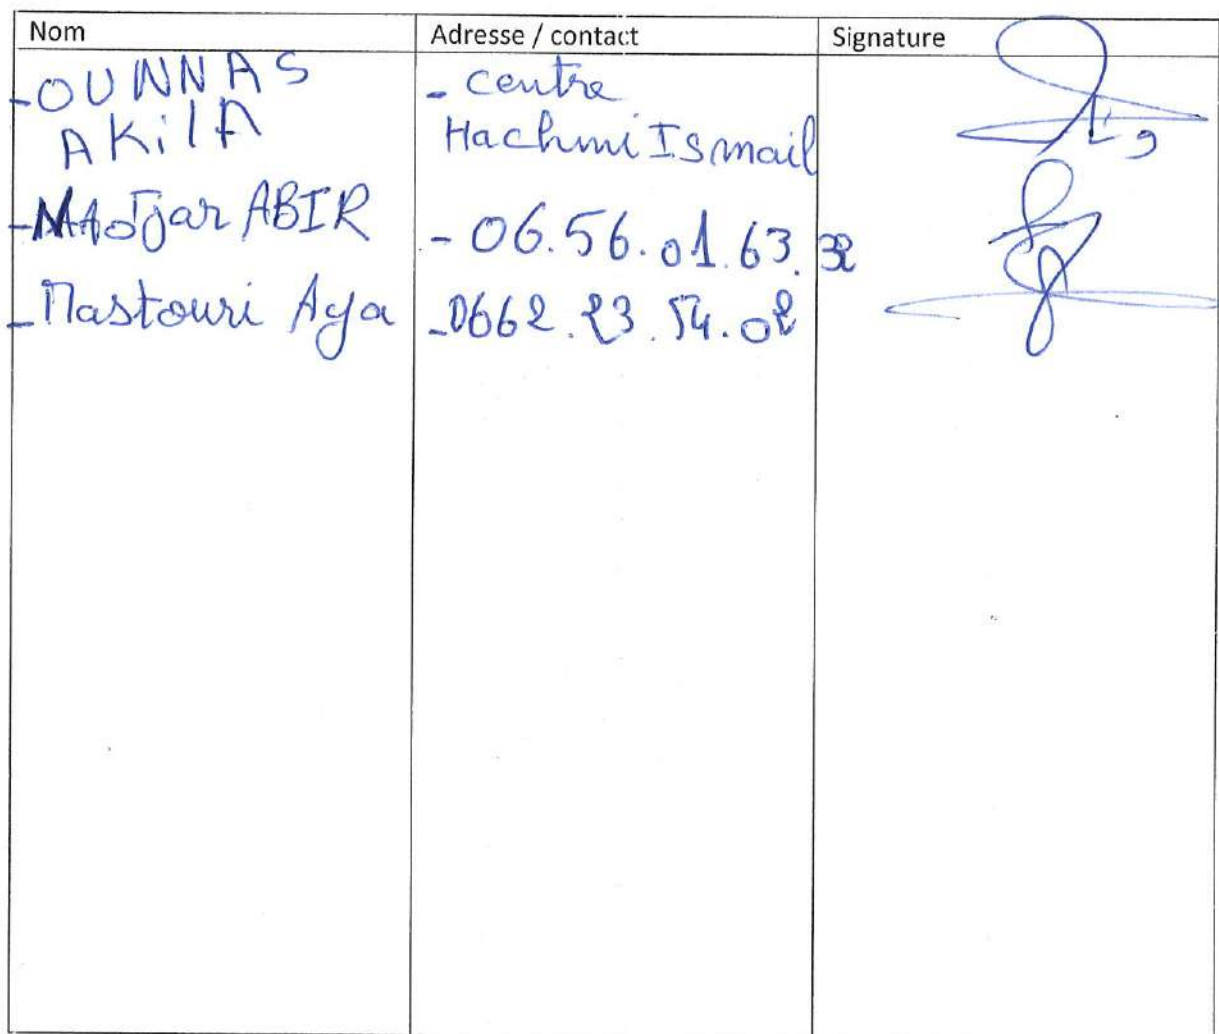 Nom Adresse / contact Signature
- OUNNAS - Centre
AKilA Hachmi ISmail
- MAdjar ABIR - 06.56.01.63.32
- Mastouri Aya - 0662.23.54.02